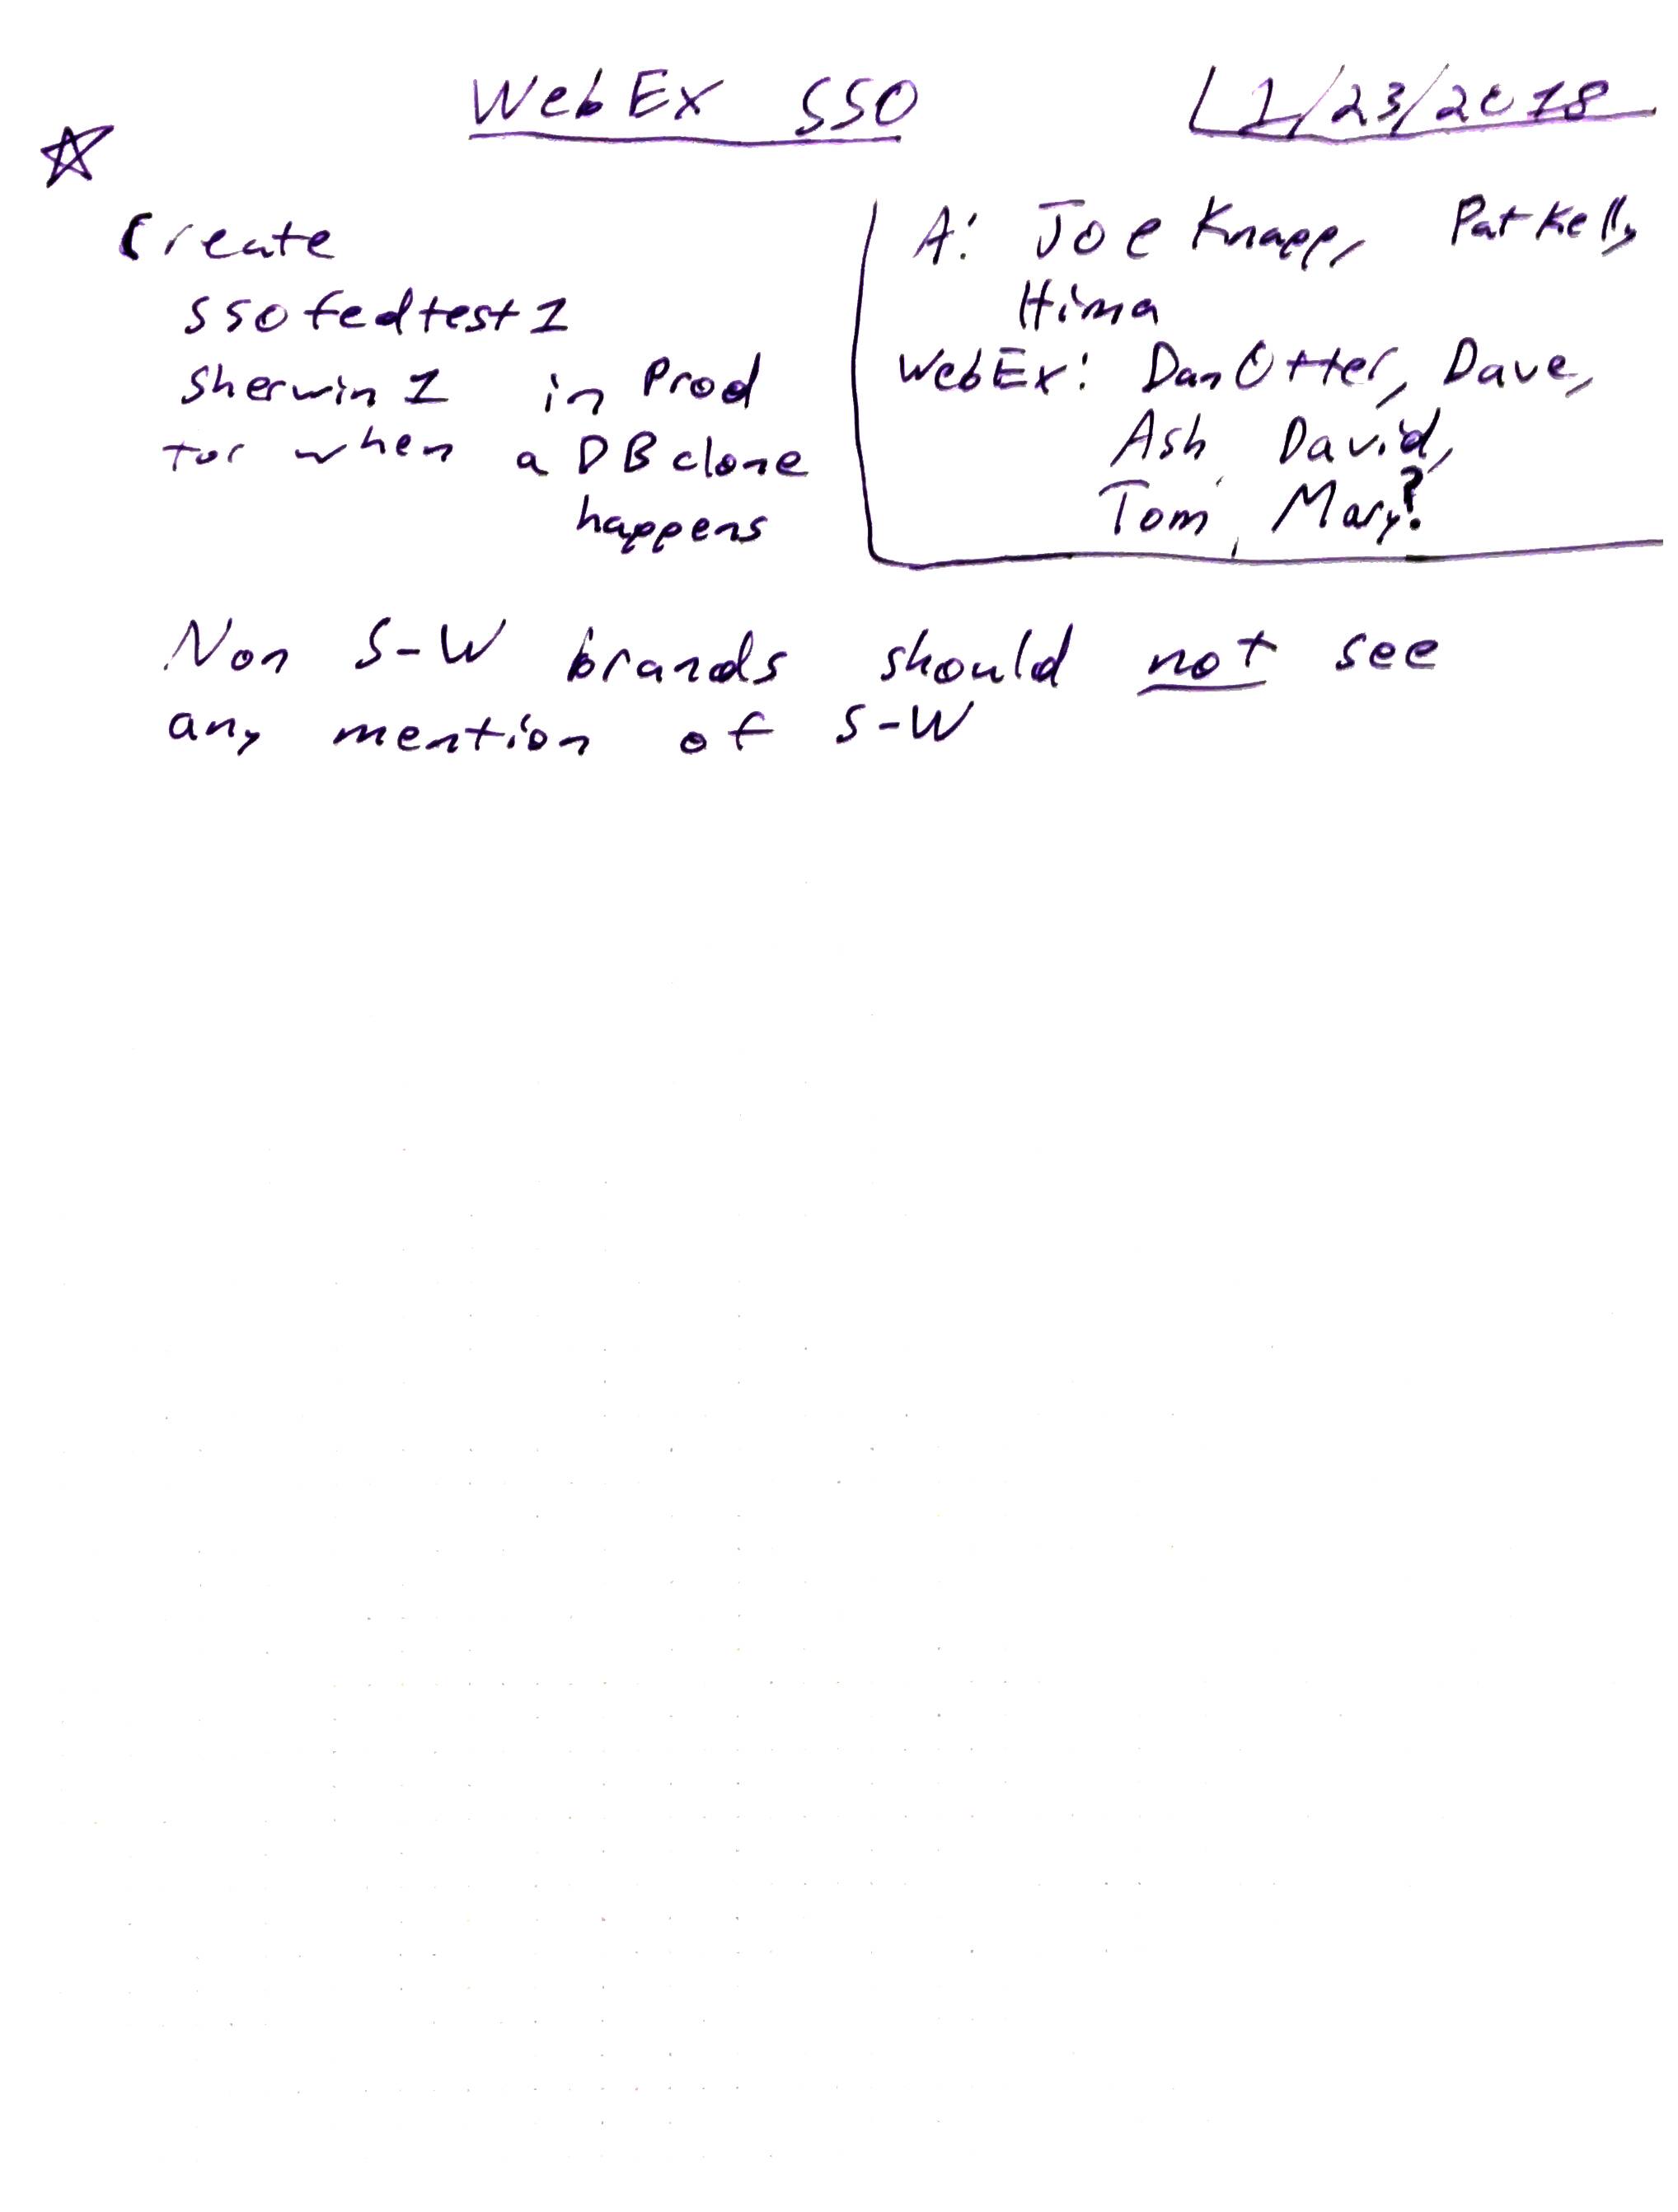 WebEx SSO
1/23/2018
Create
ssofedtest1
sherwin1 in Prod
for when a DB clone
happens
A: Joe Knapp, Pat Kelly,
Hima
WebEx: Dan Otter, Dave,
Ash, David,
Tom, Mary?
Non S-W brands should not see
any mention of S-W